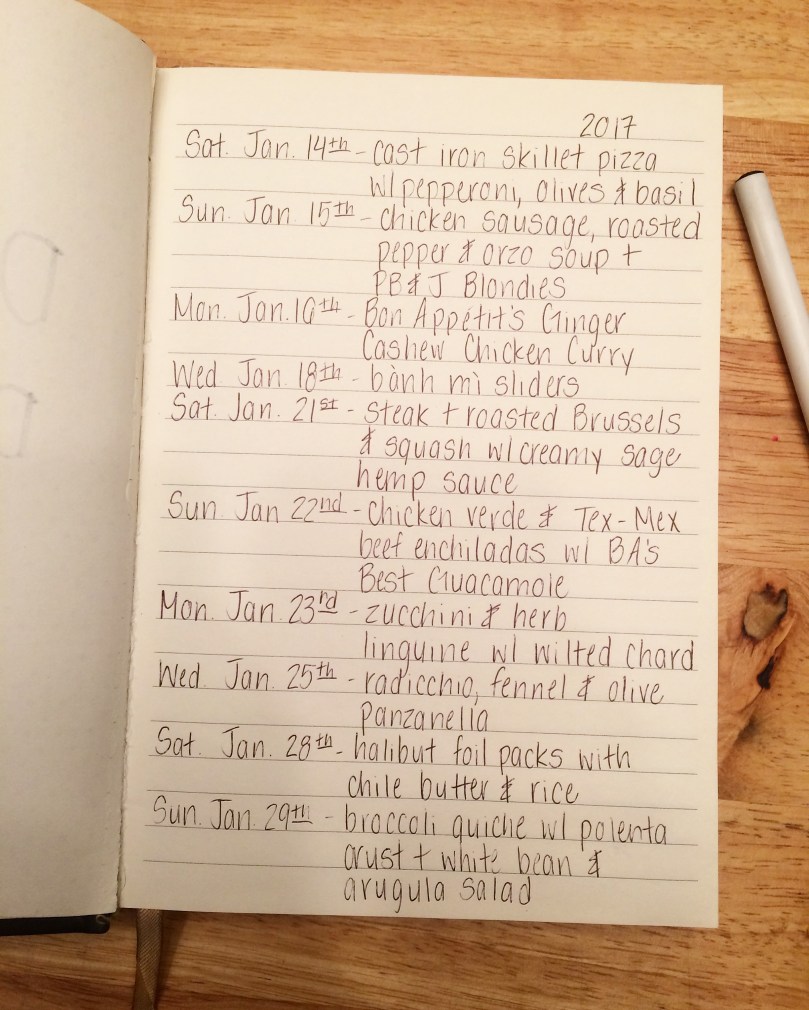 2017
Sat. Jan. 14th - cast iron skillet pizza
w/pepperoni, olives & basil
Sun. Jan. 15th - chicken sausage, roasted
pepper & orzo soup +
PB & J Blondies
Mon. Jan. 16th - Bon Appétit's Ginger
Cashew Chicken Curry
Wed Jan. 18th - bành mì sliders
Sat. Jan. 21st - steak + roasted Brussels
& squash w/creamy sage
hemp sauce
Sun Jan 22nd - chicken verde & Tex-Mex
beef enchiladas w/ BA's
Best Guacamole
Mon. Jan. 23rd - zucchini & herb
linguine w/ wilted chard
Wed. Jan. 25th - radicchio, fennel & olive
panzanella
Sat. Jan. 28th - halibut foil packs with
chile butter & rice
Sun. Jan. 29th - broccoli quiche w/ polenta
crust + white bean &
arugula salad